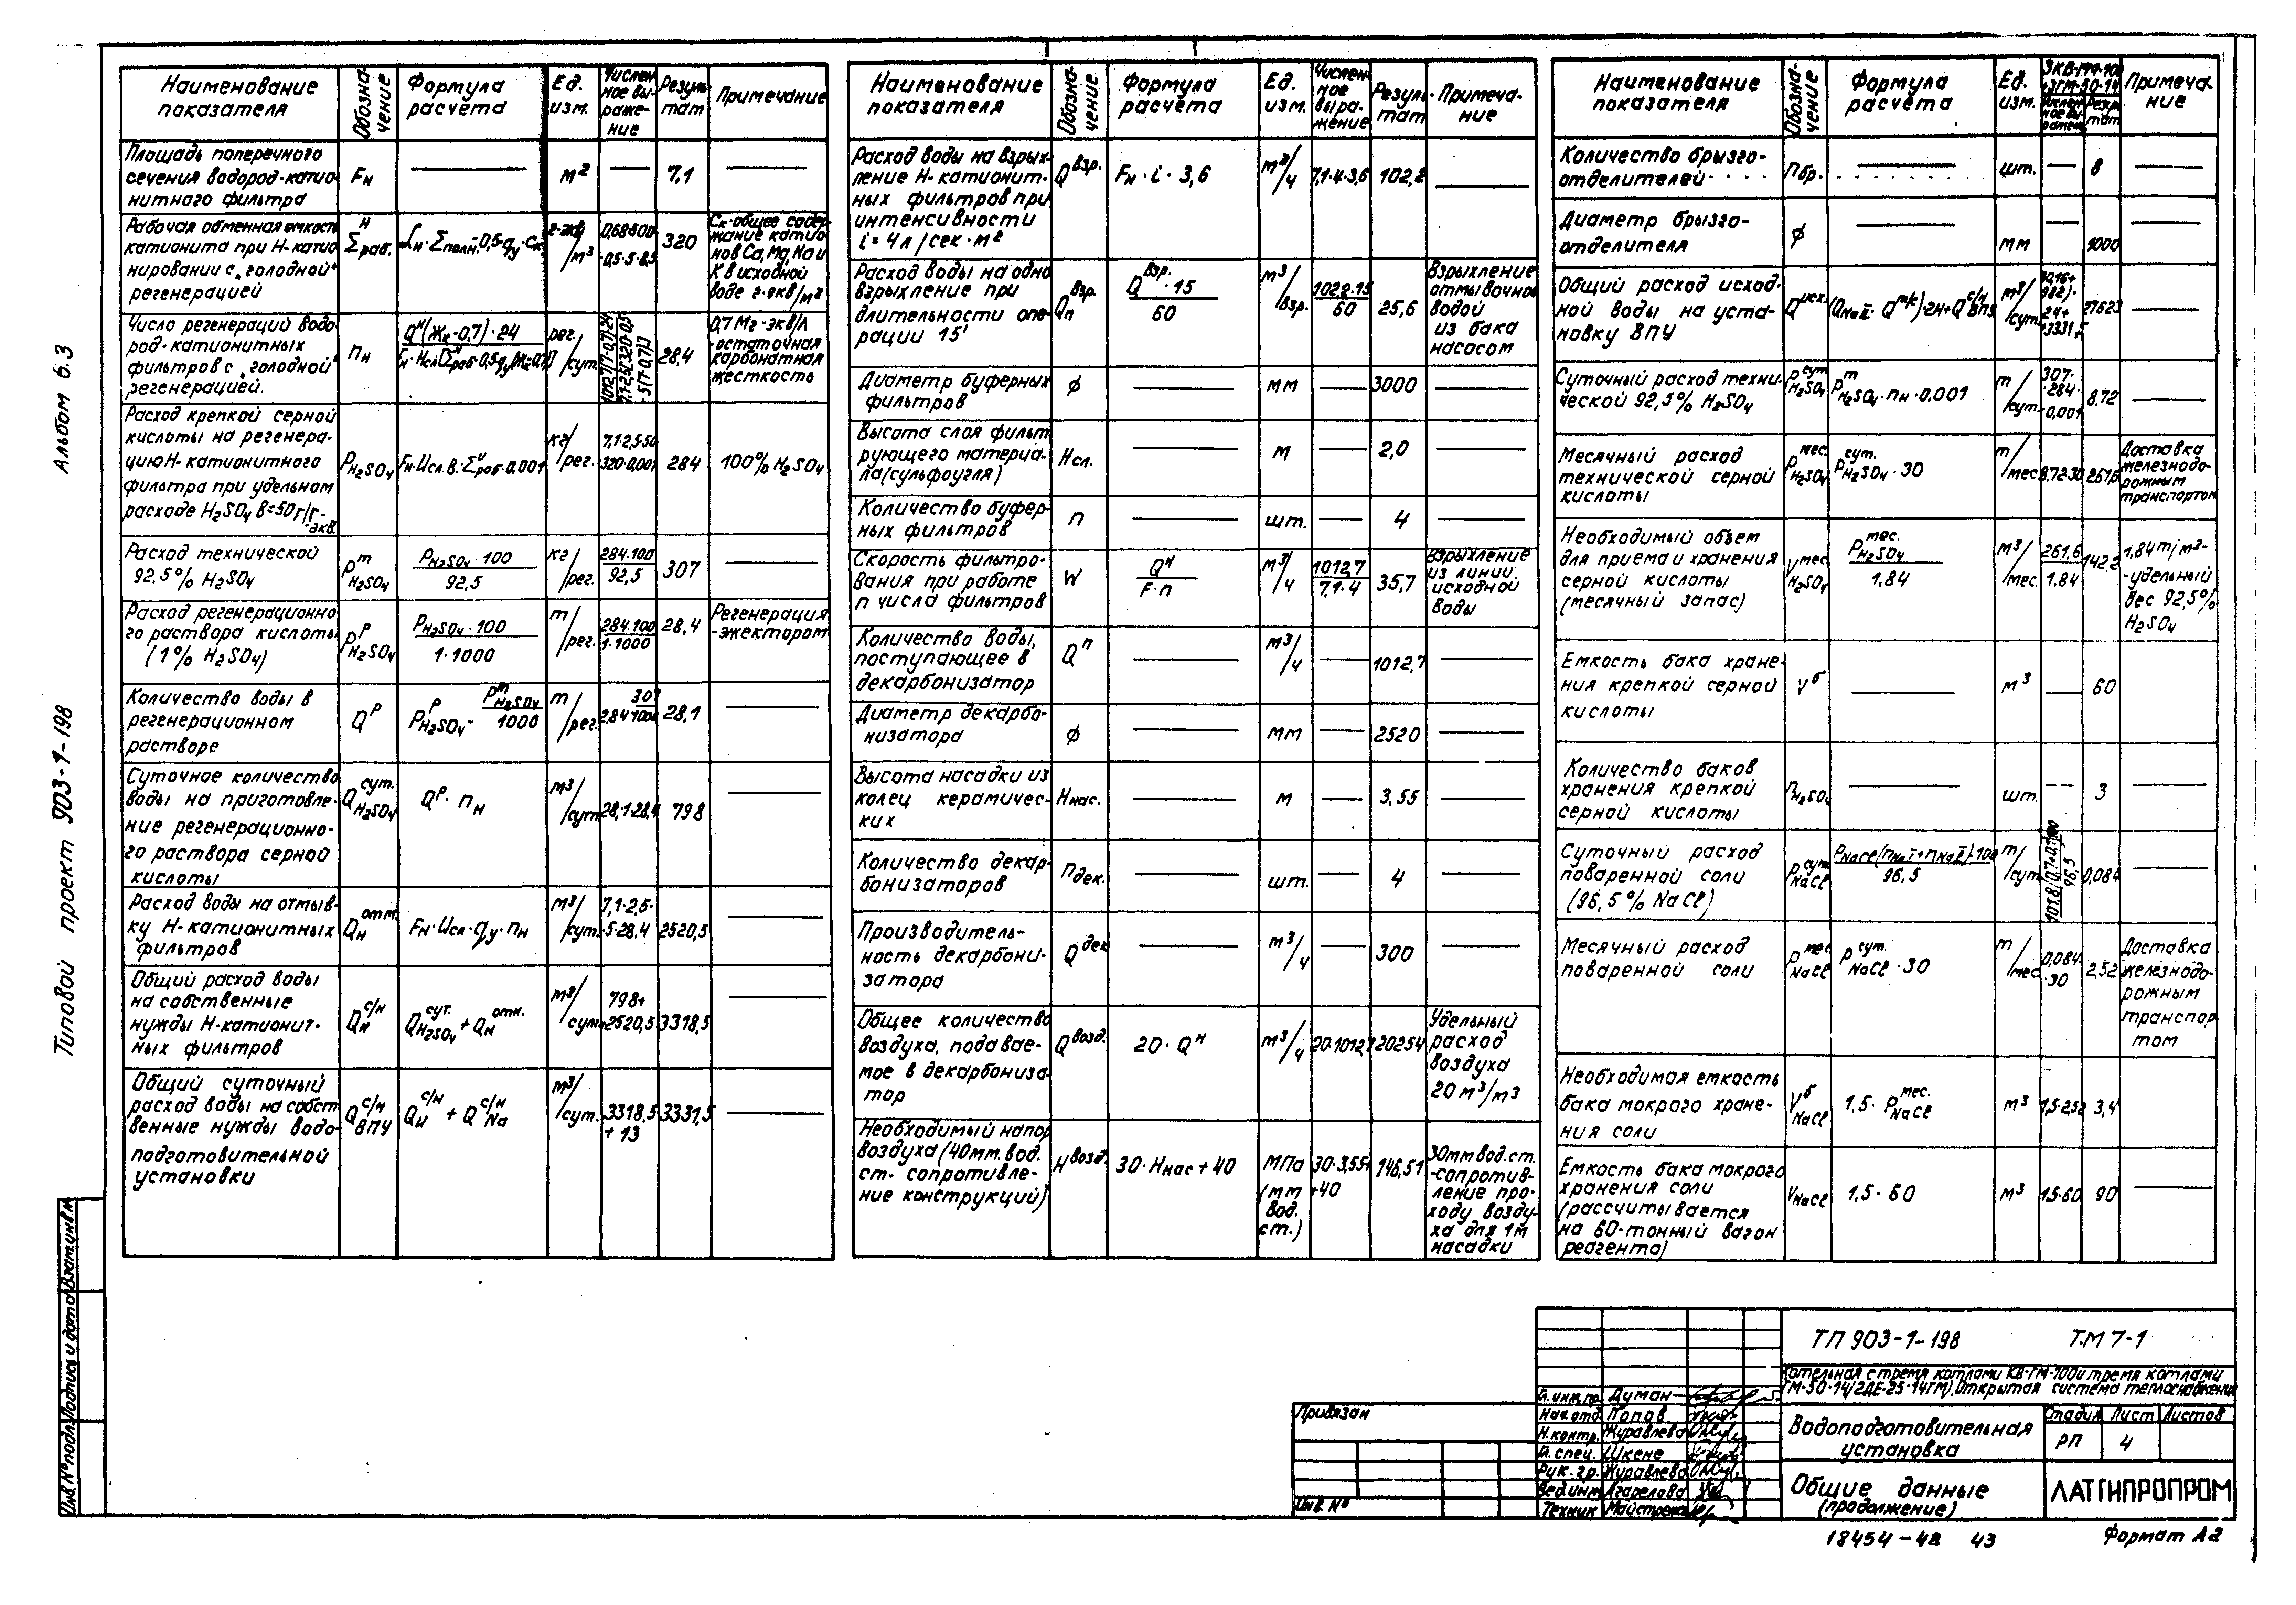 Альбом 6.3
Типовой проект 903-1-198
Наименование показателя | Обозначение | Формула расчёта | Ед. изм. | Численное выражение | Результат | Примечание
Площадь поперечного
сечения водород-катио-
нитного фильтра | Fн | — | м² | — | 7,1 | —
Рабочая обменная емкость
катионита при Н-катио-
нировании с „голодной"
регенерацией | Σ раб. Н | 320 | Ск-общее содер-
жание катио-
нов Ca, Mg, Na и
К в исходной
воде г-экв/м³
Число регенераций водо-
род-катионитных
фильтров с „голодной"
регенерацией. | nн | рег./сут. | 28,4 | 0,7 мг-экв/л
-остаточная
карбонатная
жесткость
Расход крепкой серной
кислоты на регенера-
цию Н-катионитного
фильтра при удельном
расходе H₂SO₄ в=50 г/г-экв. | P H₂SO₄ | Fн·Нсл.·в·Σраб.·0,001 | кг/рег. | 7,1·2,5·50·320·0,001 | 284 | 100% H₂SO₄
Расход технической
92,5% H₂SO₄ | Pᵐ H₂SO₄ | P H₂SO₄·100 / 92,5 | кг/рег. | 284·100 / 92,5 | 307 | —
Расход регенерационно
го раствора кислоты
(1% H₂SO₄) | Pᵖ H₂SO₄ | P H₂SO₄·100 / 1·1000 | т/рег. | 284·100 / 1·1000 | 28,4 | Регенерация
-эжектором
Количество воды в
регенерационном
растворе | Qᵖ | Pᵖ H₂SO₄ - Pᵐ H₂SO₄ / 1000 | т/рег. | 28,1
Суточное количество
воды на приготовле-
ние регенерационно-
го раствора серной
кислоты | Q сут. H₂SO₄ | Qᵖ·nн | м³/сут. | 28,1·28,4 | 798 | —
Расход воды на отмыв-
ку Н-катионитных
фильтров | Qн отм. | Fн·Нсл·qу·nн | м³/сут. | 7,1·2,5·5·28,4 | 2520,5 | —
Общий расход воды
на собственные
нужды Н-катионит-
ных фильтров | Qн с/н | Q сут. H₂SO₄ + Qн отм. | м³/сут. | 798+2520,5 | 3318,5 | —
Общий суточный
расход воды на собст
венные нужды водо-
подготовительной
установки | Q с/н ВПУ | Qн с/н + Q с/н Na | м³/сут. | 3318,5+13 | 3331,5 | —
Наименование показателя | Обозначение | Формула расчёта | Ед. изм. | Численное выражение | Результат | Примечание
Расход воды на взрых-
ление Н-катионит-
ных фильтров при
интенсивности
i=4л/сек·м² | Q взр. | Fн·i·3,6 | м³/ч | 7,1·4·3,6 | 102,2 | —
Расход воды на одно
взрыхление при
длительности опе-
рации 15' | Qп взр. | Q взр.·15 / 60 | м³/взр. | 102,2·15 / 60 | 25,6 | Взрыхление
отмывочной
водой
из бака
насосом
Диаметр буферных
фильтров | ϕ | — | мм | — | 3000 | —
Высота слоя фильт
рующего материа-
ла (сульфоугля) | Нсл. | — | м | — | 2,0 | —
Количество буфер-
ных фильтров | n | — | шт. | — | 4 | —
Скорость фильтро-
вания при работе
n числа фильтров | W | Qᴴ / F·n | м³/ч | 1012,7 / 7,1·4 | 35,7 | Взрыхление
из линии
исходной
воды
Количество воды,
поступающее в
декарбонизатор | Qⁿ | — | м³/ч | — | 1012,7 | —
Диаметр декарбо-
низатора | ϕ | — | мм | — | 2520 | —
Высота насадки из
колец керамичес-
ких | Ннас. | — | м | — | 3,55 | —
Количество декар-
бонизаторов | nдек. | — | шт. | — | 4 | —
Производитель-
ность декарбони-
затора | Q дек | — | м³/ч | — | 300 | —
Общее количество
воздуха, подавае-
мое в декарбониза-
тор | Q возд. | 20·Qᴴ | м³/ч | 20·1012,7 | 20254 | Удельный
расход
воздуха
20 м³/м³
Необходимый напор
воздуха (40мм.вод.
ст- сопротивле-
ние конструкций) | Н возд. | 30·Ннас+40 | МПа (мм вод. ст.) | 30·3,55+40 | 146,51 | 30мм вод.ст.
-сопротив-
ление про-
ходу возду-
ха для 1м
насадки
Наименование показателя | Обозначение | Формула расчёта | Ед. изм. | Числен-ное выражен. | Результат | Примечание
Количество брызго-
отделителей | nбр. | — | шт. | — | 8 | —
Диаметр брызго-
отделителя | ϕ | — | мм | — | 1000 | —
Общий расход исход-
ной воды на уста-
новку ВПУ | Q исх. | м³/сут. | 27623 | —
Суточный расход техни-
ческой 92,5% H₂SO₄ | P сут H₂SO₄ | Pᵐ H₂SO₄·nн·0.001 | т/сут. | 307·284·0,001 | 8.72 | —
Месячный расход
технической серной
кислоты | P мес. H₂SO₄ | P сут. H₂SO₄·30 | т/мес | 8,72·30 | 261,6 | Доставка
железнодо-
рожным
транспортом
Необходимый объем
для приема и хранения
серной кислоты
(месячный запас) | V мес. H₂SO₄ | P мес. H₂SO₄ / 1,84 | м³/мес. | 261,6 / 1.84 | 142,2 | 1,84 т/м³-
-удельный
вес 92,5%
H₂SO₄
Емкость бака хране-
ния крепкой серной
кислоты | Vᵟ | — | м³ | — | 60 | —
Количество баков
хранения крепкой
серной кислоты | n H₂SO₄ | — | шт. | — | 3 | —
Суточный расход
поваренной соли
(96,5% NaCl) | P сут NaCl | т/сут | 0,084 | —
Месячный расход
поваренной соли | P мес NaCl | P сут. NaCl·30 | т/мес | 0,084·30 | 2,52 | Доставка
железнодо-
рожным
транспор
том
Необходимая емкость
бака мокрого хране-
ния соли | Vᵟ NaCl | 1,5·P мес. NaCl | м³ | 1,5·2,52 | 3,4 | —
Емкость бака мокрого
хранения соли
(рассчитывается
на 60-тонный вагон
реагента) | V NaCl | 1,5·60 | м³ | 1,5·60 | 90 | —
ТП 903-1-198 Т.М 7-1
Котельная с тремя котлами КВ-ГМ-100 и тремя котлами
ГМ-50-14/2ДЕ-25-14ГМ). Открытая система теплоснабжения
Гл. инж. пр. Думан
Нач. отд. Попов
Н.контр. Журавлева
Гл. спец. Шкене
Рук. гр. Журавлева
Вед. инж. Агарелова
Техник
Водоподготовительная
установка
Стадия Лист Листов
РП 4
Общие данные
(продолжение)
ЛАТГИПРОПРОМ
Привязан
Инв. №
Инв.№подл. Подпись и дата Взам.инв.№
18454-42 43
Формат А2